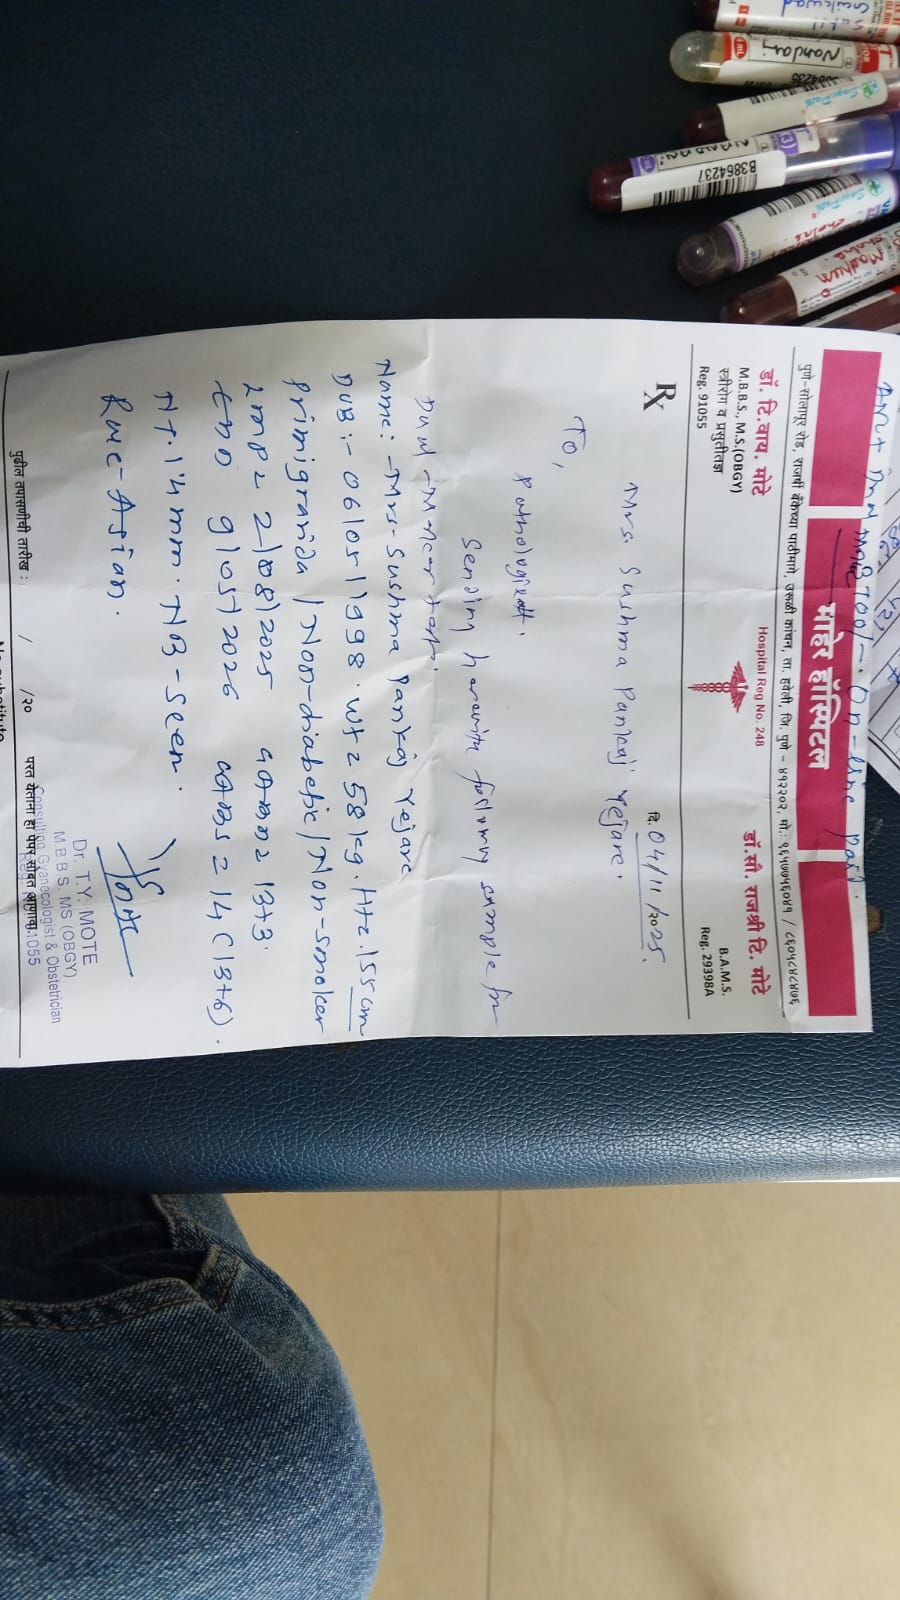 ANC+ Dual Marker 700/- On-line paid.
माहेर हॉस्पिटल
पुणे-सोलापूर रोड, राजर्षी बँकेच्या पाठीमागे, उरूळी कांचन, ता. हवेली, जि. पुणे - ४१२२०२,
डॉ. टि.वाय. मोटे
M.B.B.S., M.S.(OBGY)
स्त्रीरोग व प्रसुतीतज्ञ
Reg. 91055
Hospital Reg No. 248
डॉ.सौ. राजश्री टि. मोटे
B.A.M.S.
Reg. 29398A
Rx
दि. 04/11/२०25.
Mrs. Sushma Pankaj Yejare.
To,
Pathologist.
Sending herewith following sample for
Dual Marker test.
Name:- Mrs. Sushma Pankaj Yejare
DOB:- 06/05/1998. Wt = 58kg. Ht = 155cm
Primigravida / Non-diabetic / Non-smoker
LMP = 2/08/2025 GABD = 13+3.
EDD 9/05/2026 GABS = 14 (13+6).
NT. 1.4mm. NB-Seen.
Race-Asian.
Dr. T.Y. MOTE
M.B.B.S. MS (OBGY)
Consulting Gynaecologist & Obstetrician
पुढील तपासणीची तारीख : / /२०
परत येताना हा पेपर सोबत आणावा.
No substitute
Nandani
B3864237
Madhum